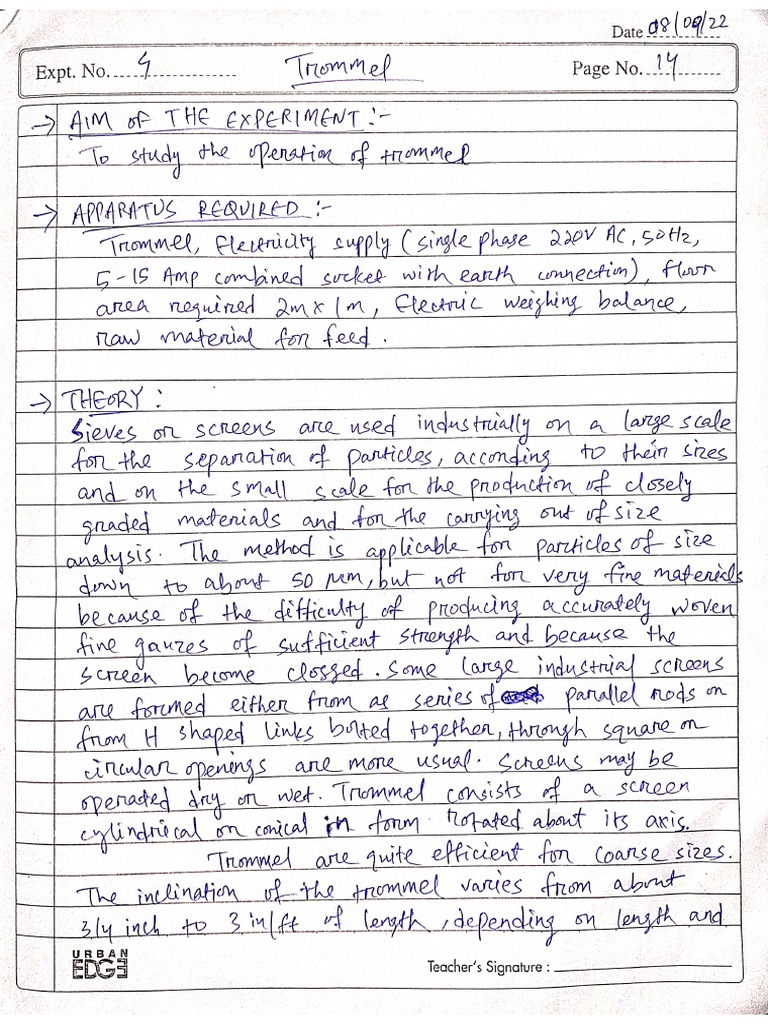 Date 08/09/22
Expt. No. 4 Trommel Page No. 14
→ AIM OF THE EXPERIMENT :-
To study the operation of trommel
→ APPARATUS REQUIRED :-
Trommel, Electricity supply (single phase 220V AC, 50Hz,
5-15 Amp combined socket with earth connection), floor
area required 2m x 1m, Electric weighing balance,
raw material for feed.
→ THEORY :
Sieves or screens are used industrially on a large scale
for the separation of particles, according to their sizes
and on the small scale for the production of closely
graded materials and for the carrying out of size
analysis. The method is applicable for particles of size
down to about 50 μm, but not for very fine materials
because of the difficulty of producing accurately woven
fine gauzes of sufficient strength and because the
screen become clossed. Some large industrial screens
are formed either from as series of parallel rods or
from H shaped links bolted together, through square or
circular openings are more usual. Screens may be
operated dry or wet. Trommel consists of a screen
cylindrical or conical in form rotated about its axis.
Trommel are quite efficient for coarse sizes.
The inclination of the trommel varies from about
3/4 inch to 3 in/ft of length, depending on length and
URBAN
EDGE
Teacher's Signature :